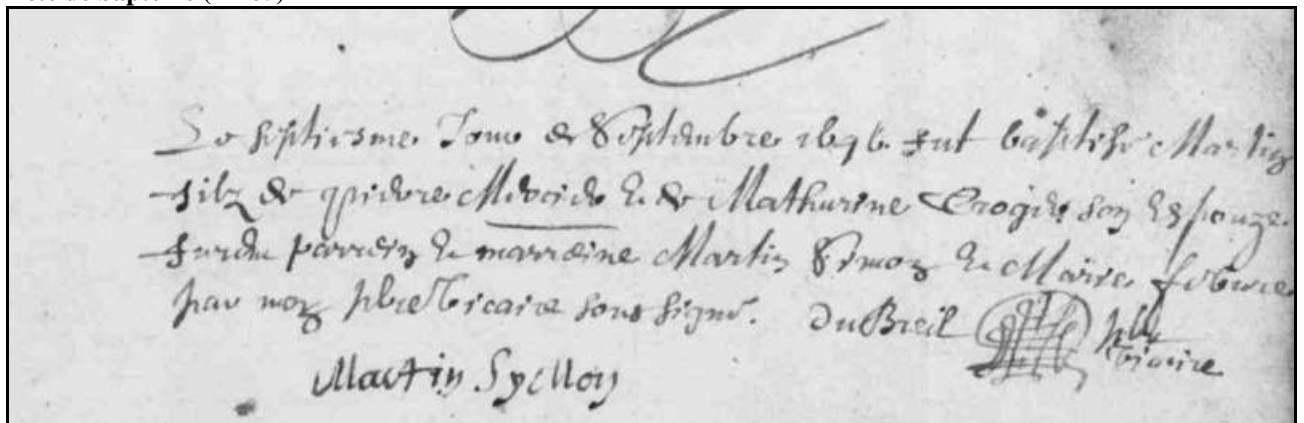 Le septiesme Jour de Septembre 1696 fut baptisé Martin
filz de Mercier & de Mathurine son Espouze
furent parrein & marreine Martin Simon & Marie febvre
par moy pbre vicaire soussigné. DuBreil pbre
vicaire
Martin Symon